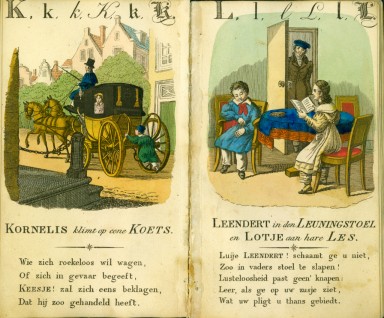 K. k. k. K. k. K
KORNELIS klimt op eene KOETS.
Wie zich roekeloos wil wagen,
Of zich in gevaar begeeft,
KEESJE! zal zich eens beklagen,
Dat hij zoo gehandeld heeft.
L. l. l. L. l. L
LEENDERT in den LEUNINGSTOEL
en LOTJE aan hare LES.
Luije LEENDERT! schaamt ge u niet,
Zoo in vaders stoel te slapen!
Lusteloosheid past geen' knapen;
Leer, als ge op uw zusje ziet,
Wat uw pligt u thans gebiedt.